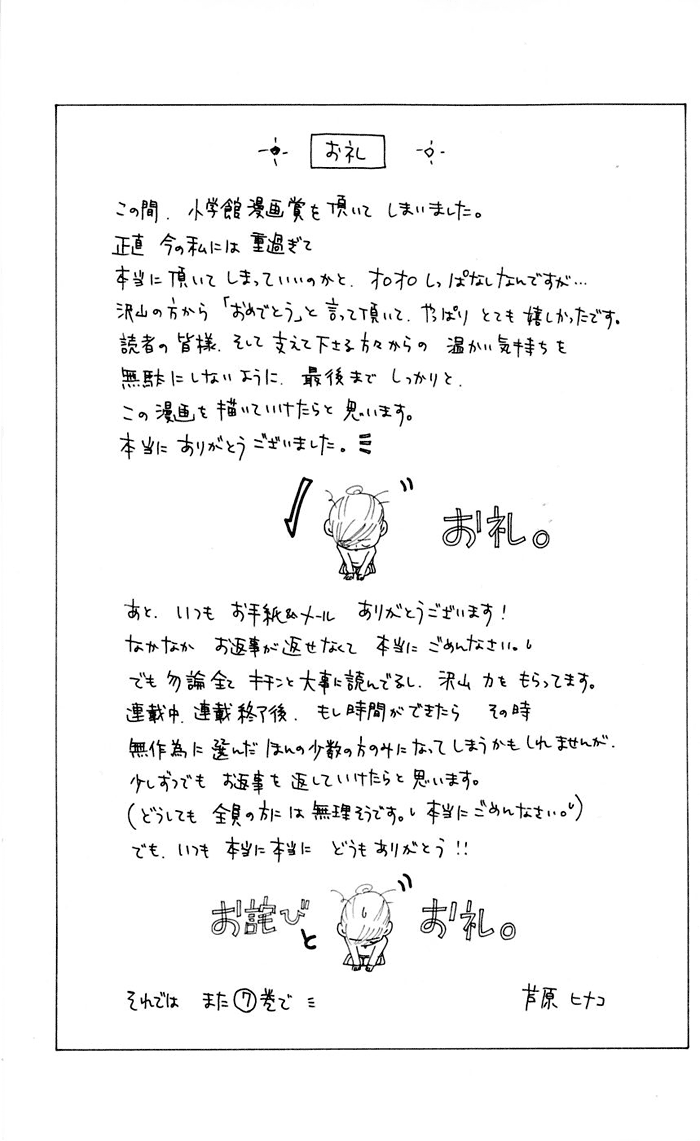 お礼
この間、小学館漫画賞を頂いて しまいました。
正直 今の私には 重過ぎて
本当に頂いて しまっていいのかと、オロオロしっぱなしなんですが…
沢山の方から「おめでとう」と言って頂いて、やっぱり とても 嬉しかったです。
読者の皆様、そして支えて下さる方々からの 温かい気持ちを
無駄にしないように、最後まで しっかりと、
この漫画を描いていけたらと思います。
本当に ありがとうございました。
お礼。
あと、いつも お手紙&メール ありがとうございます!
なかなか お返事が返せなくて 本当に ごめんなさい。
でも 勿論全て キチンと大事に読んでるし、沢山 力を もらってます。
連載中、連載終了後、もし時間ができたら その時
無作為に選んだ ほんの少数の方のみになってしまうかもしれませんが、
少しずつでも お返事を返していけたらと思います。
(どうしても 全員の方には 無理そうです。本当にごめんなさい。)
でも、いつも 本当に本当に どうもありがとう!!
お詫びと お礼。
それでは また⑦巻で
芦原 ヒナコ